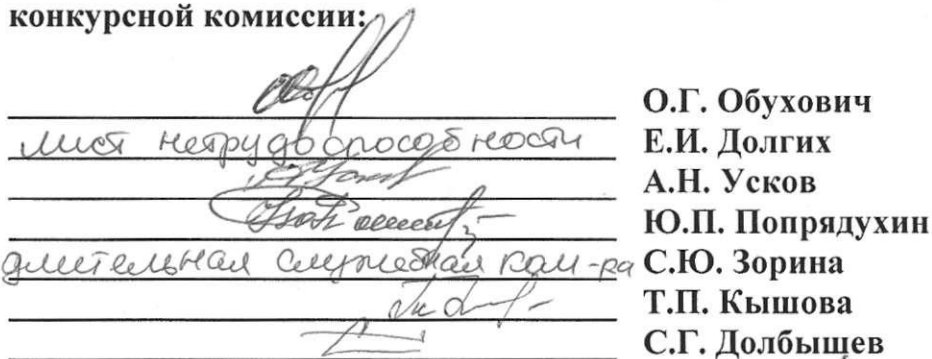 конкурсной комиссии:
О.Г. Обухович
лист нетрудоспособности Е.И. Долгих
А.Н. Усков
Ю.П. Попрядухин
длительная служебная ком-ра С.Ю. Зорина
Т.П. Кышова
С.Г. Долбыщев